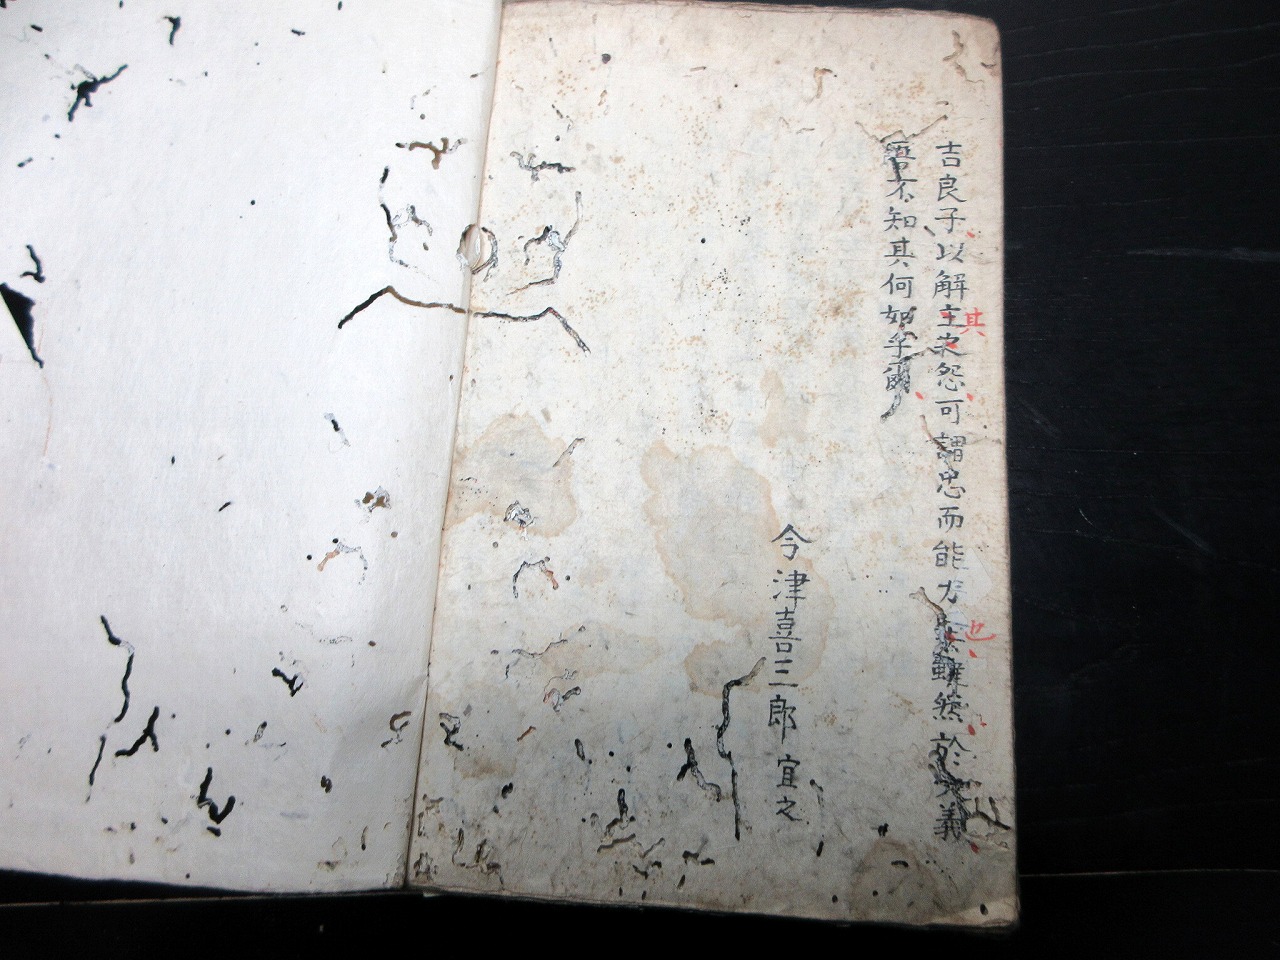 吉良子以解主之怨可謂忠而能力雖然於大義
吾不知其何如乎
其
也
今津喜三郎宜之